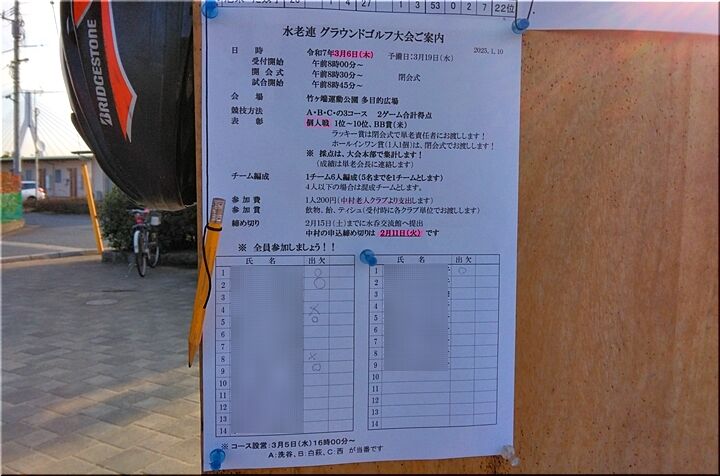 1 4 1 1 3 53 0 2 7 22位
BRIDGESTONE
水老連 グラウンドゴルフ大会ご案内
2025. 1. 10
日 時 令和7年3月6日(木) 予備日：3月19日(水)
受付開始 午前8時00分～
開 会 式 午前8時30分～ 閉会式
試合開始 午前8時45分～
会 場 竹ヶ端運動公園 多目的広場
競技方法 A・B・Cの3コース 2ゲーム合計得点
表 彰 個人戦 1位～10位、BB賞(米)
ラッキー賞は閉会式で単老責任者にお渡しします！
ホールインワン賞(1人1個)は、閉会式でお渡しします！
※ 採点は、大会本部で集計します！
(成績は単老会長に連絡します)
チーム編成 1チーム6人編成(5名まで1チームとします)
4人以下の場合は混成チームとします。
参 加 費 1人200円(中村老人クラブより支出します)
参 加 賞 飲物、飴、ティシュ(受付時に各クラブ単位でお渡しします)
締め切り 2月15日(土)までに水呑交流館へ提出
中村の申込締め切りは 2月11日(火) です
※ 全員参加しましょう！！
氏 名 出欠 氏 名 出欠
1 ○ 1 ○
2 ○ 2
3 3
4 × 4
5 ○ 5
6 6
7 7
8 × 8
9 ○ 9
10 10
11 11
12 12
13 13
14 14
※ コース設営：3月5日(水)16時00分～
A：洗谷、B：白萩、C：西 が当番です